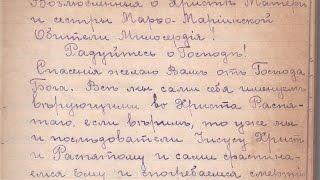 Возлюбленныя о Христѣ Матери
и сестры Марѳо-Маріинской
Обители Милосердія!
Радуйтесь о Господѣ!
Спасенія желаю Вамъ отъ Господа
Бога. Всѣ мы сами себя именуемъ
вѣрующими во Христа Распя-
таго, если вѣримъ, то уже мы
и послѣдователи Іисусу Христу
и Распятому и сами срасспина-
емся Ему и спогребаемся смерти